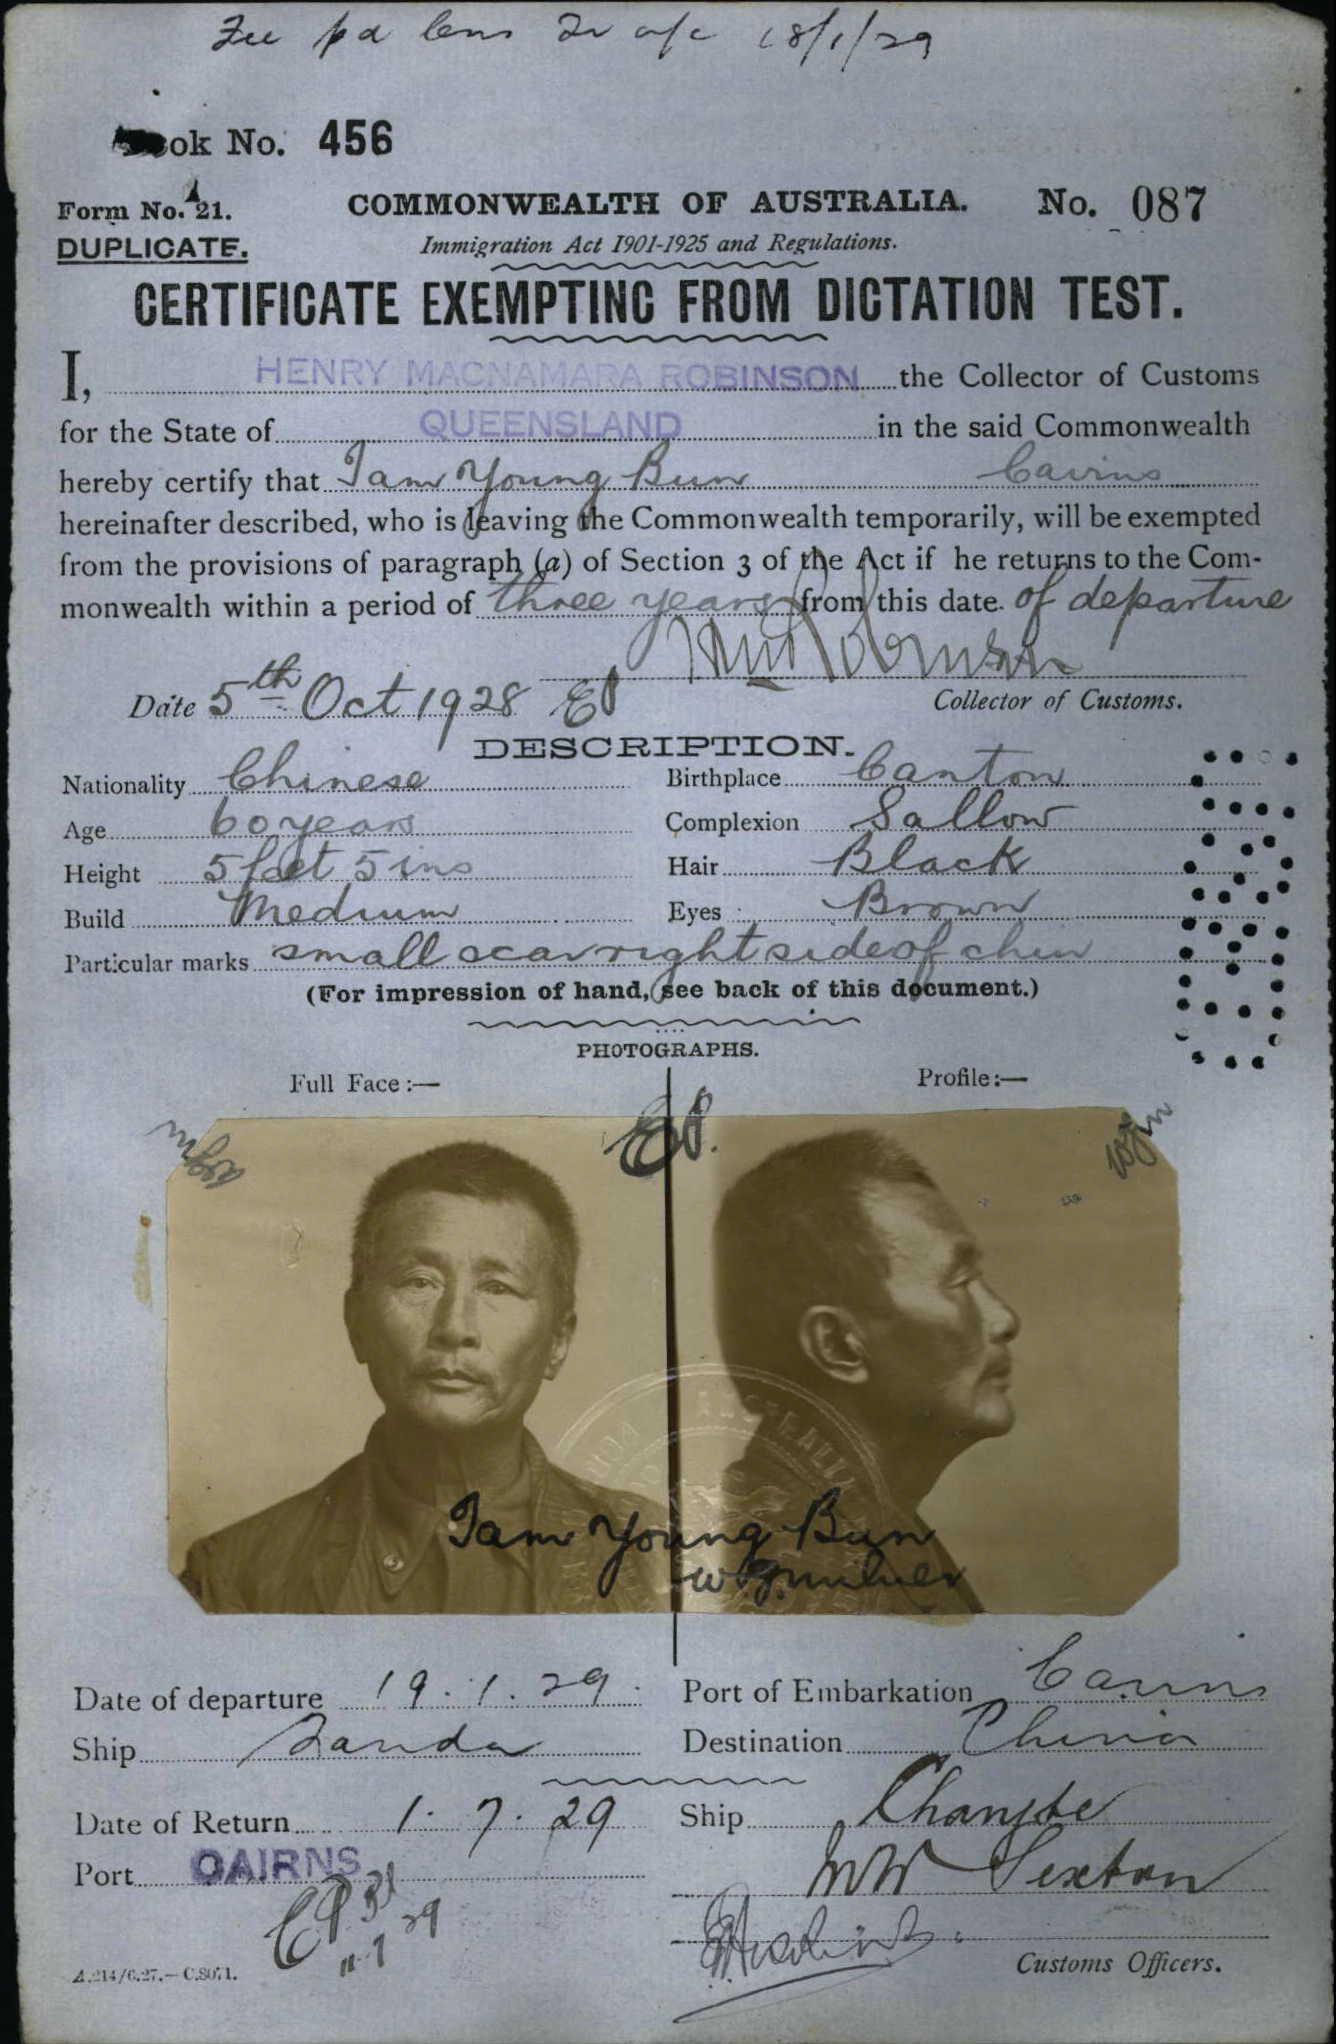 Fee pd Cens Tr a/c 18/1/29
ok No. 456
Form No. 21. COMMONWEALTH OF AUSTRALIA. No. 087
DUPLICATE. Immigration Act 1901-1925 and Regulations.
CERTIFICATE EXEMPTING FROM DICTATION TEST.
I, HENRY MACNAMARA ROBINSON the Collector of Customs
for the State of QUEENSLAND in the said Commonwealth
hereby certify that Tam Young Bun Cairns
hereinafter described, who is leaving the Commonwealth temporarily, will be exempted
from the provisions of paragraph (a) of Section 3 of the Act if he returns to the Com-
monwealth within a period of three years from this date of departure
Robinson
Date 5th Oct 1928 Collector of Customs.
DESCRIPTION.
Nationality Chinese Birthplace Canton
Age 60 years Complexion Sallow
Height 5 feet 5 ins Hair Black
Build Medium Eyes Brown
Particular marks small scar right side of chin
(For impression of hand, see back of this document.)
PHOTOGRAPHS.
Full Face :— Profile :—
Tam Young Bun
Date of departure 19.1.29. Port of Embarkation Cairns
Ship Tanda Destination China
Date of Return 1.7.29 Ship Changte
Port CAIRNS Sexton
Customs Officers.
A.214/6.27.—C.8071.